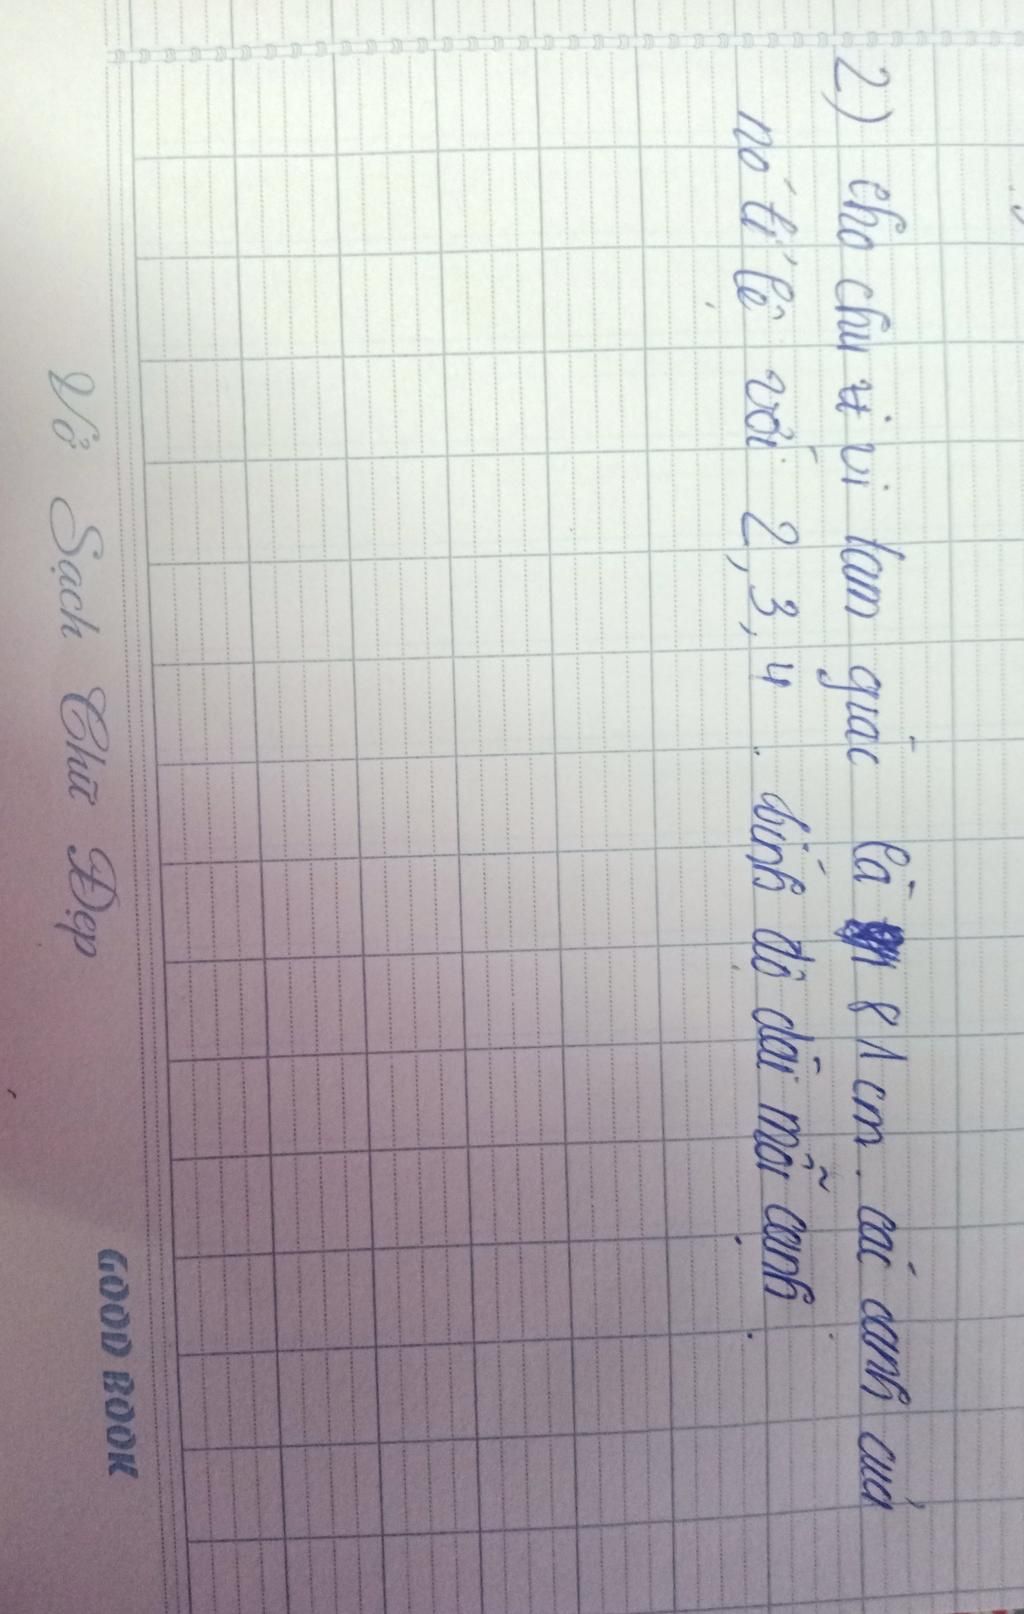 2) cho chu vi tam giác là 81cm. các cạnh của
nó tỉ lệ với 2, 3, 4. tính độ dài mỗi cạnh.
Vở Sạch Chữ Đẹp
GOOD BOOK